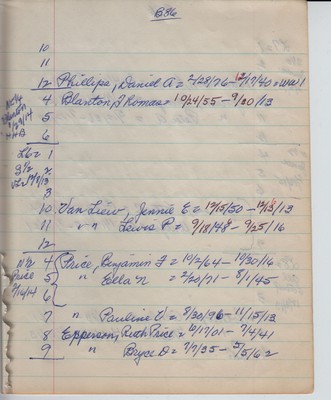 B86
10
11
12 Phillips, Daniel A = 2/28/76 - 12/17/40 = WW 1
4 Blanton, J Romas = 10/24/55 - 9/30/13
5
6
L6 = 1
3 1/2 2
3
10 Van Liew, Jennie E = 12/15/50 - 12/13/13
11 " " Lewis P = 9/18/48 - 9/25/16
12
N/2 4 Price, Benjamin F = 10/2/64 - 11/30/16
Price 5 " Ella N = 2/20/71 - 8/1/45
7/16/14 6
7 " Pauline V = 8/30/96 - 11/15/13
8 Epperson, Ruth Price = 10/17/01 - 7/4/41
9 " Bryce D = 7/7/35 - 5/5/62